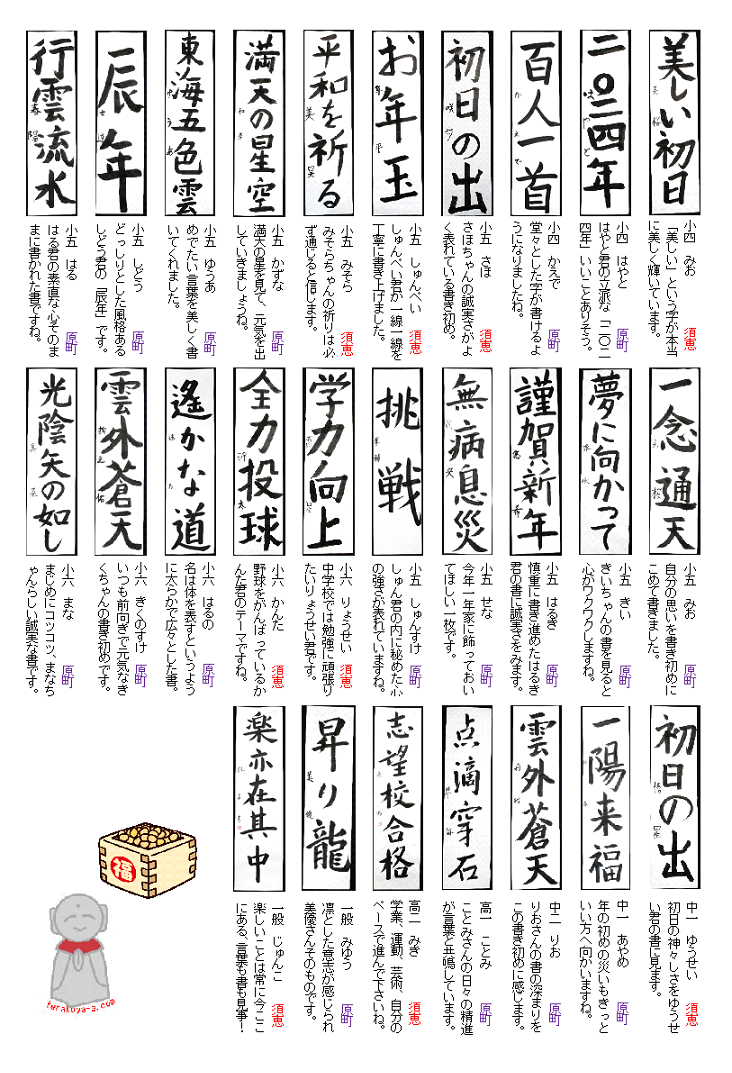 美しい初日
小四 みお 須恵
「美しい」という字が本当
に美しく輝いています。
二〇二四年
小四 はやと 原町
はやと君の立派な「二〇二
四年」いいことありそう。
百人一首
小四 かえで 原町
堂々とした字が書けるよ
うになりましたね。
初日の出
小五 さほ
さほちゃんの誠実さがよ
く表れている書き初め。
お年玉
小五 しゅんぺい 須恵
しゅんぺい君が一線一線を
丁寧に書き上げました。
平和を祈る
小五 みそら 須恵
みそらちゃんの祈りは必
ず通じると信じます。
満天の星空
小五 かずな 原町
満天の星を見て、元気を出
していきましょうね。
東海五色雲
小五 ゆうあ 原町
めでたい言葉を美しく書
いてくれました。
辰年
小五 しどう 原町
どっしりとした風格ある
しどう君の「辰年」です。
行雲流水
小五 はる 原町
はる君の素直な心そのま
まに書かれた書ですね。
一念通天
小五 みお 原町
自分の思いを書き初めに
こめて書きました。
夢に向かって
小五 きい 原町
きいちゃんの書を見ると
心がワクワクしますね。
謹賀新年
小五 はるき 原町
慎重に書き進めたはるき
君の書に誠実さをみます。
無病息災
小五 せな 原町
今年一年家に飾っておい
てほしい一枚です。
挑戦
小五 しゅんすけ 原町
しゅん君の内に秘めた心
の強さが表れていますね。
学力向上
小六 りょうせい 須恵
中学校では勉強に頑張り
たいりょうせい君です。
全力投球
小六 かんた 須恵
野球をがんばっているか
んた君のテーマですね。
遙かな道
小六 はるの 原町
名は体を表すというよう
に太らかで広々とした書。
雲外蒼天
小六 きくのすけ 原町
いつも前向きで元気なき
くちゃんの書き初めです。
光陰矢の如し
小六 まな 原町
まじめにコツコツ、まなち
ゃんらしい誠実な書です。
初日の出
中一 ゆうせい 須恵
初日の神々しさをゆうせ
い君の書に見ます。
一陽来福
中一 あやめ 原町
年の初めの災いもきっと
いい方へ向かいますね。
雲外蒼天
中二 りお 原町
りおさんの書の深まりを
この書き初めに感じます。
点滴穿石
高一 ことみ 原町
ことみさんの日々の精進
が言葉と共鳴しています。
志望校合格
高二 みき 須恵
学業、運動、芸術、自分の
ペースで進んで下さいね。
昇り龍
一般 みゆう 原町
凛とした意志が感じられ
美優さんそのものです。
楽亦在其中
一般 じゅんこ 須恵
楽しいことは常に今ここ
にある、言葉も書も見事!
福
terakoya-a.com